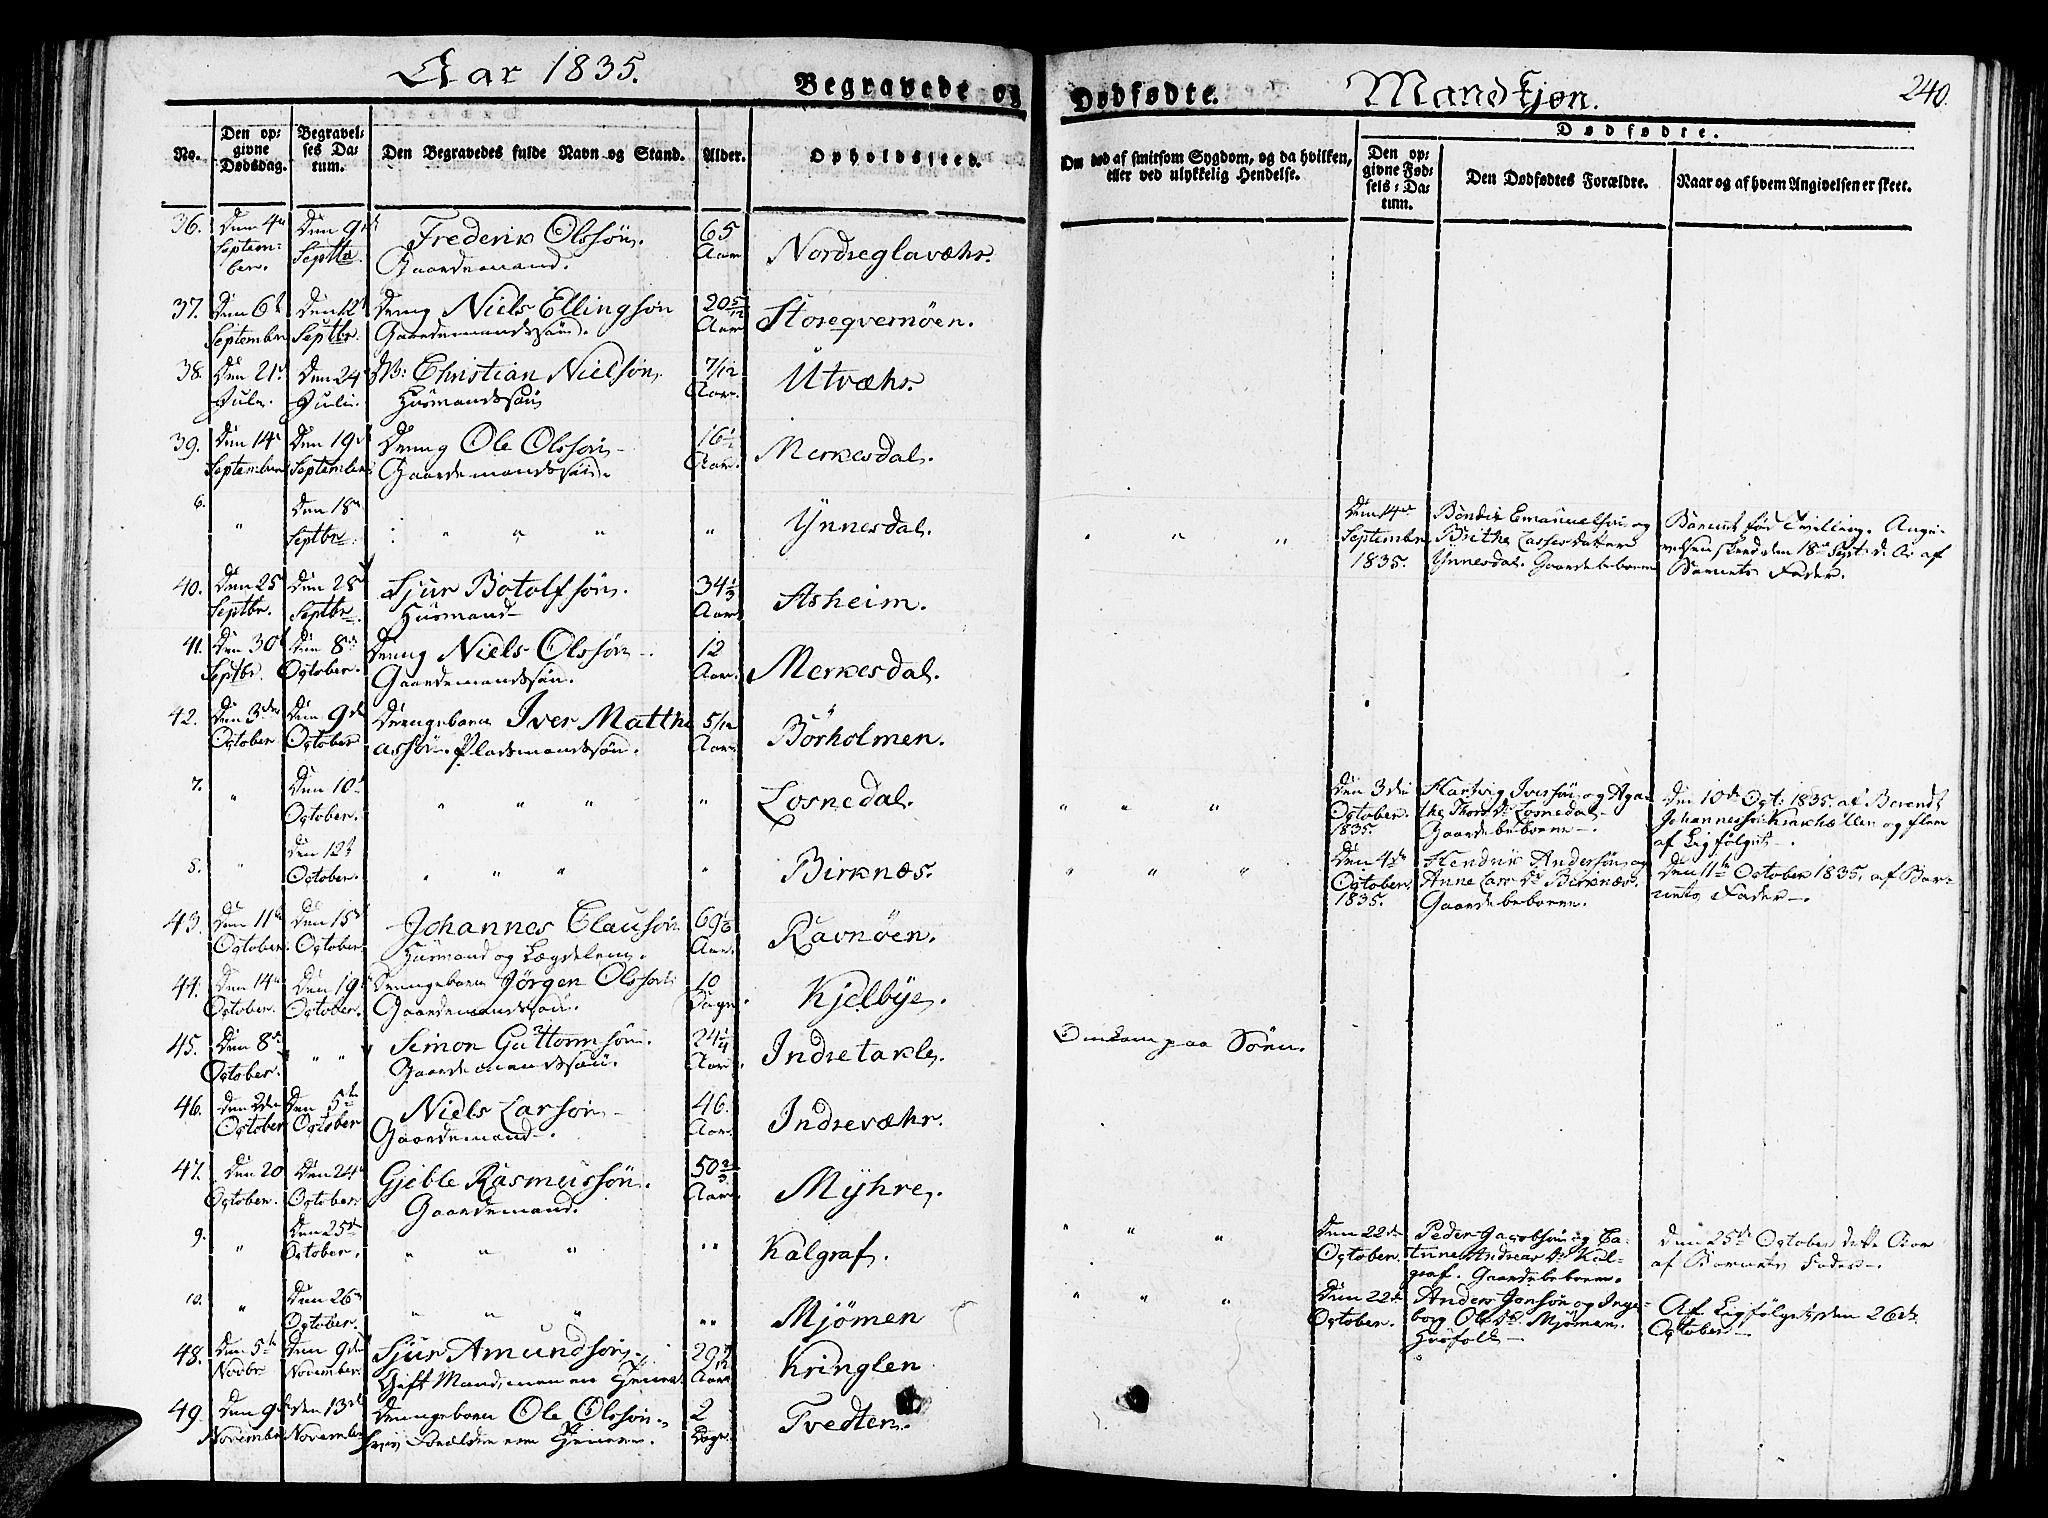 Aar 1835.
Begravede og
Dødfødte.
Mandkjøn.
240.
No.
Den opgivne Dødsdag.
Begravelses Datum.
Den Begravedes fulde Navn og Stand.
Alder.
Opholdssted.
Om død af smitsom Sygdom, og da hvilken,
eller ved ulykkelig Hendelse.
Dødfødte.
Den opgivne Fødsels-Datum.
Den Dødfødtes Forældre.
Naar og af hvem Angivelsen er skeet.
36. Den 4de Den 9de Frederik Olssøn. 65
September. Septbr Gaardemand. Aar Nordreglavæhr.
37. Den 6te Den 12te Dreng Niels Ellingsøn 20 5/12
September Septbr. Gaardemandssøn. Aar Storeqvernøen.
38. Den 21de Den 24de Christian Nielsøn 7/12
Juli. Juli. Huusmandssøn Aar. Utvæhr.
39. Den 14de Den 19de Dreng Ole Olssøn 16 1/2
September September Gaardemandssøn. Aar. Merkesdal.
6. " Den 18de
Septbr. " " " " Ynnesdal.
Den 14de
September
1835.
Bendix Emanuelsøn og
Brithe Lassesdatter
Ynnesdal. Gaardebeboere
Barnet fød Tvilling. Angivelsen skeed den 18de Sept. d. A. af
Barnets Fader.
40. Den 25de Den 28de Sjur Botolfsøn. 34 1/3
Septbr. Septbr. Huusmand Aar Asheim.
41. Den 30te Den 8de Dreng Niels Olssøn 12
Septbr. October. Gaardemandssøn. Aar. Merkesdal.
42. Den 3die Den 9de Drengebarn Iver Matthi 5/12
October October assøn. Pladsmandssøn. Aar. Börholmen.
7. " Den 10de
October. " " " " Losnedal.
Den 3die
October.
1835.
Hartvig Iversøn og Agathe Thorsdr Losnedal
Gaardebeboere.
Den 10de Oct: 1835. af Berendt
Johannessøn Krakhællen og flere
af Ligfølget.
8. " Den 12te
October. " " " " Birknæs.
Den 4de
October.
1835.
Hendrik Andersøn og
Anne Larsdr Birknæs.
Gaardebeboere.
Den 11te October 1835. af Barnets Fader.
43. Den 11te Den 15de Johannes Clausøn 69 1/6
October. October. Huusmand og Lægdelem. Aar. Ravnøen.
44. Den 14de Den 19de Drengebarn Jørgen Olssøn 10
October. October. Gaardemandssøn. Dage. Kjelbÿe.
45. Den 8de " " Simon Guttormsøn. 24 1/4
October. Gaardemandssøn. Aar. Indretakle.
Omkom paa Søen.
46. Den 2den Den 5te Niels Larsøn 46.
October October Gaardemand. Aar. Indrevæhr.
47. Den 20 Den 24de Gjeble Rasmussøn. 50 2/3
October. October. Gaardemand. Aar. Mÿhre.
9. " Den 25de
October. " " " " " Kalgraf.
Den 22de
October.
Peder Jacobsøn og Catrine Andreasdr Kalgraf. Gaardebeboere.
Den 25de October dette Aar
af Barnets Fader.
10. " Den 26de
October. " " " " " Mjømen
Den 22de
October.
Anders Jonsøn og Ingeborg Olsdr Mjømen.
Huusfolk
Af Ligfølget, den 26de
October.
48. Den 5te Den 9de Sjur Amundsøn 29
Novbr November. Gift Mand, men Aar Kringlen
49. Den 9de Den 13de Drengebarn Ole Olssøn 2
November November Forældre Dage. Tvedten.